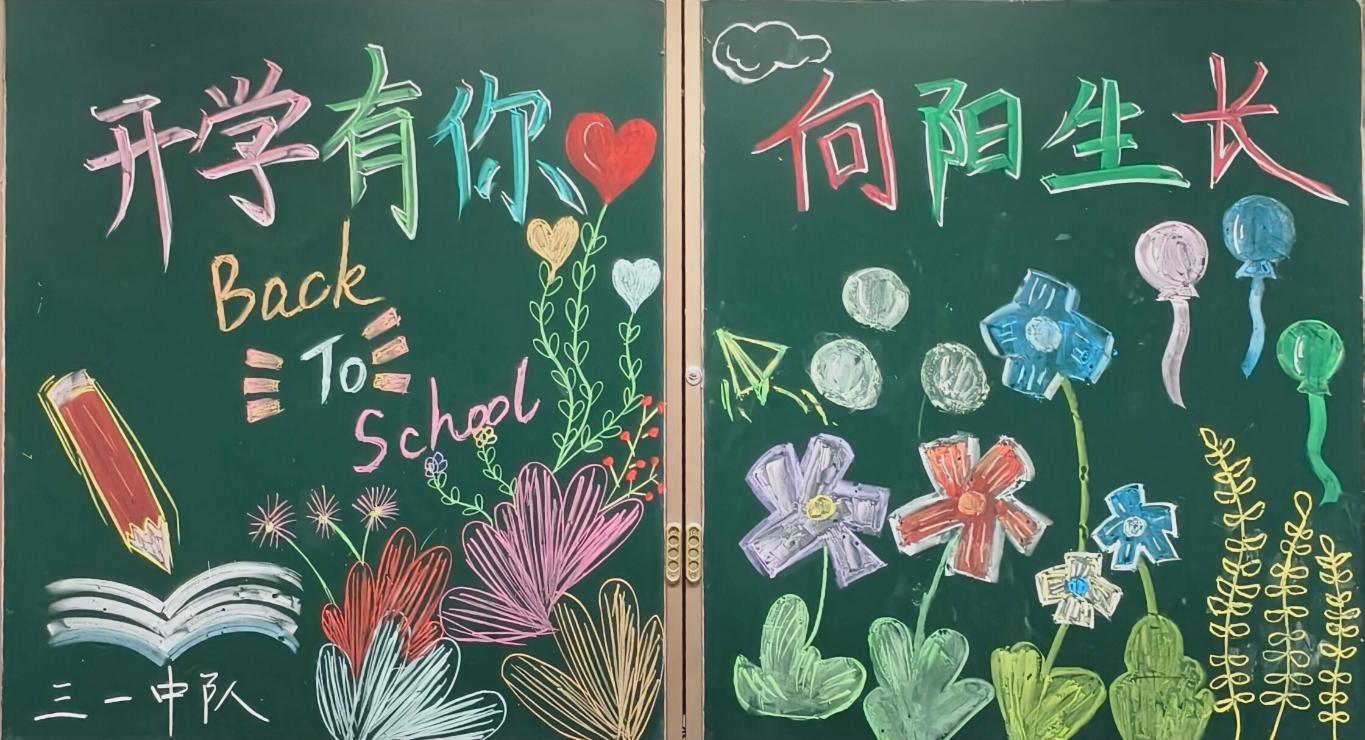 开学有你
Back
To
School
三一中队
向阳生长